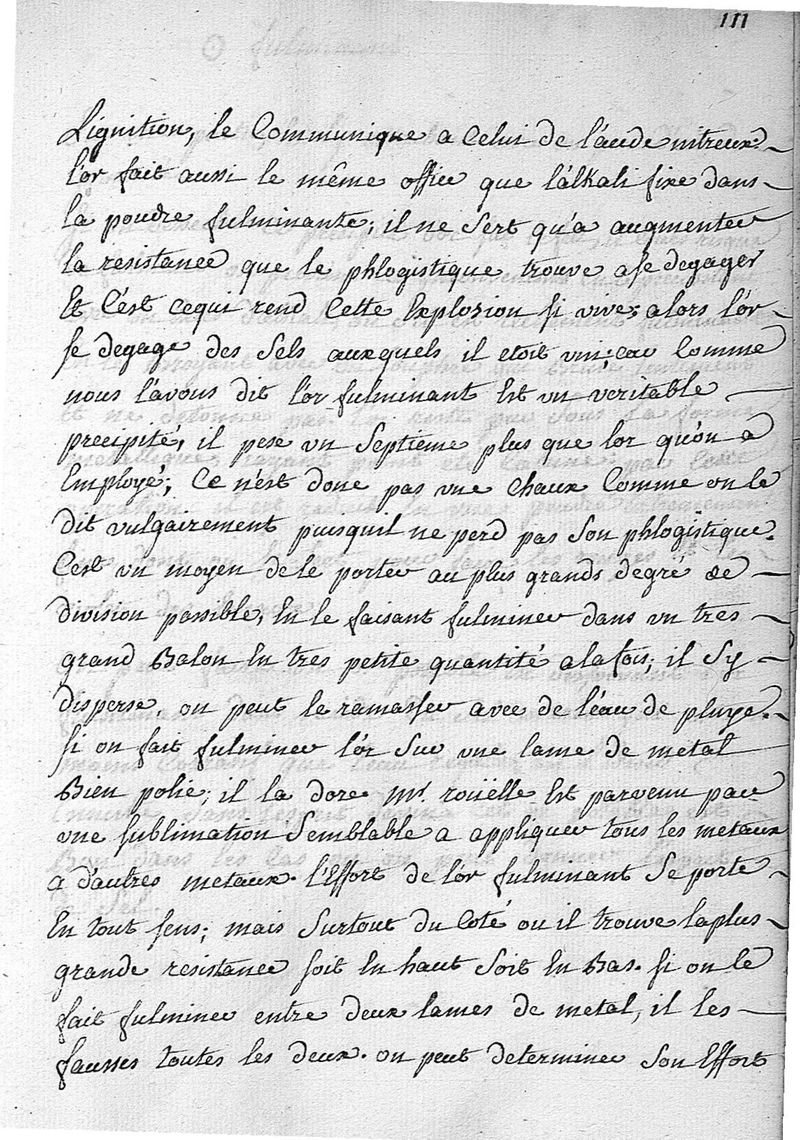 111
L'ignition, le Communique a Celui de l'acide nitreux.
l'or fait aussi le même office que l'alkali fixe dans
la poudre fulminante; il ne Sert qu'a augmenter
la resistance que le phlogistique trouve a se degager
Et C'est cequi rend Cette Explosion si vive; alors l'or
se degage des Sels auxquels il etoit uni; car Comme
nous l'avons dit l'or fulminant Est un veritable
precipité; il pese un Septieme plus que l'or qu'on a
Employé; Ce n'est donc pas une Chaux Comme on le
dit vulgairement puisquil ne perd pas Son phlogistique.
C'est un moyen de le porter au plus grands degré de
division possible, En le faisant fulminer dans un tres
grand Balon En tres petite quantité a la fois; il Sy
disperse, on peut le ramasser avec de l'éau de pluye.
Si on fait fulminer l'or Sur une lame de metal
Bien polie; il la dore Mr. rouëlle Est parvenu par
une Sublimation Semblable a appliquer tous les metaux
a d'autres metaux. l'Effort de l'or fulminant Se porte
En tout sens; mais Surtout du Coté ou il trouve laplus
grande resistance soit En haut Soit En Bas. Si on le
fait fulminer entre deux lames de metal, il les
fausses toutes les deux. on peut determiner Son Effort